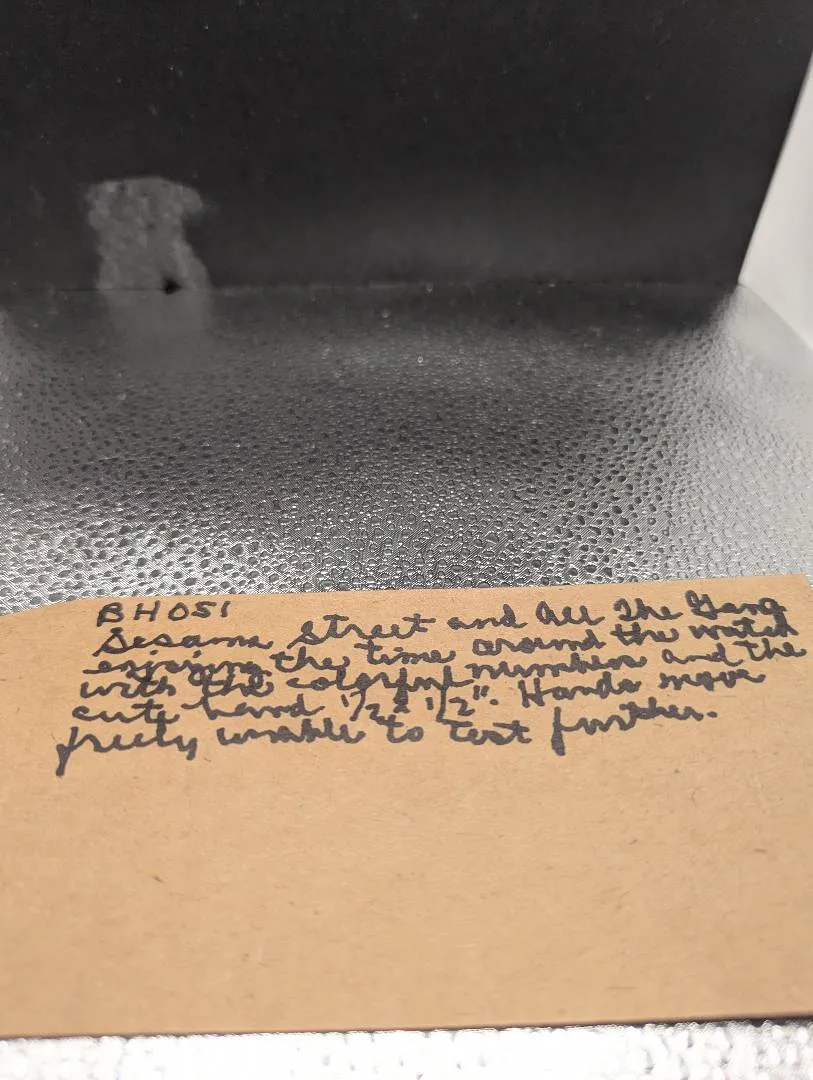 BH051
Sesame Street and All The Gang
enjoying the time around the watch
with the colorful numbers and the
cute hand 1/2 & 1/2". Hands move
freely unable to test further.